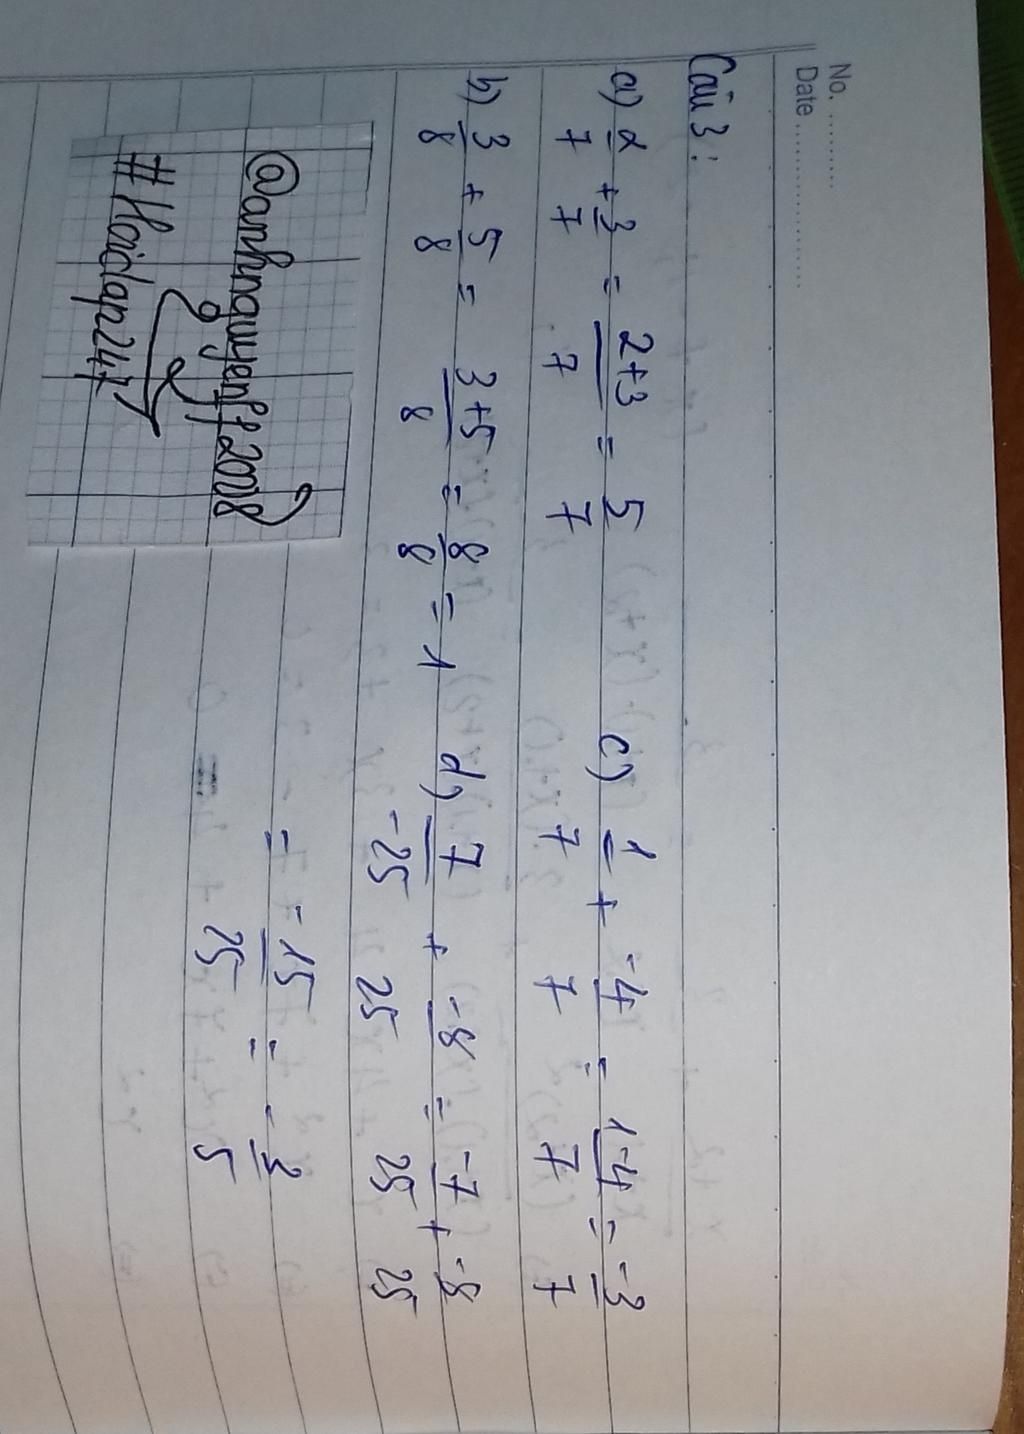 No. ..........
Date ....................
Câu 3:
a) 2/7 + 3/7 = 2+3/7 = 5/7
c) 1/7 + -4/7 = 1-4/7 = -3/7
b) 3/8 + 5/8 = 3+5/8 = 8/8 = 1
d) 7/-25 + -8/25 = -7/25 + -8/25
= -15/25 = -3/5
@anhnguyenff2008
#Hoidap247